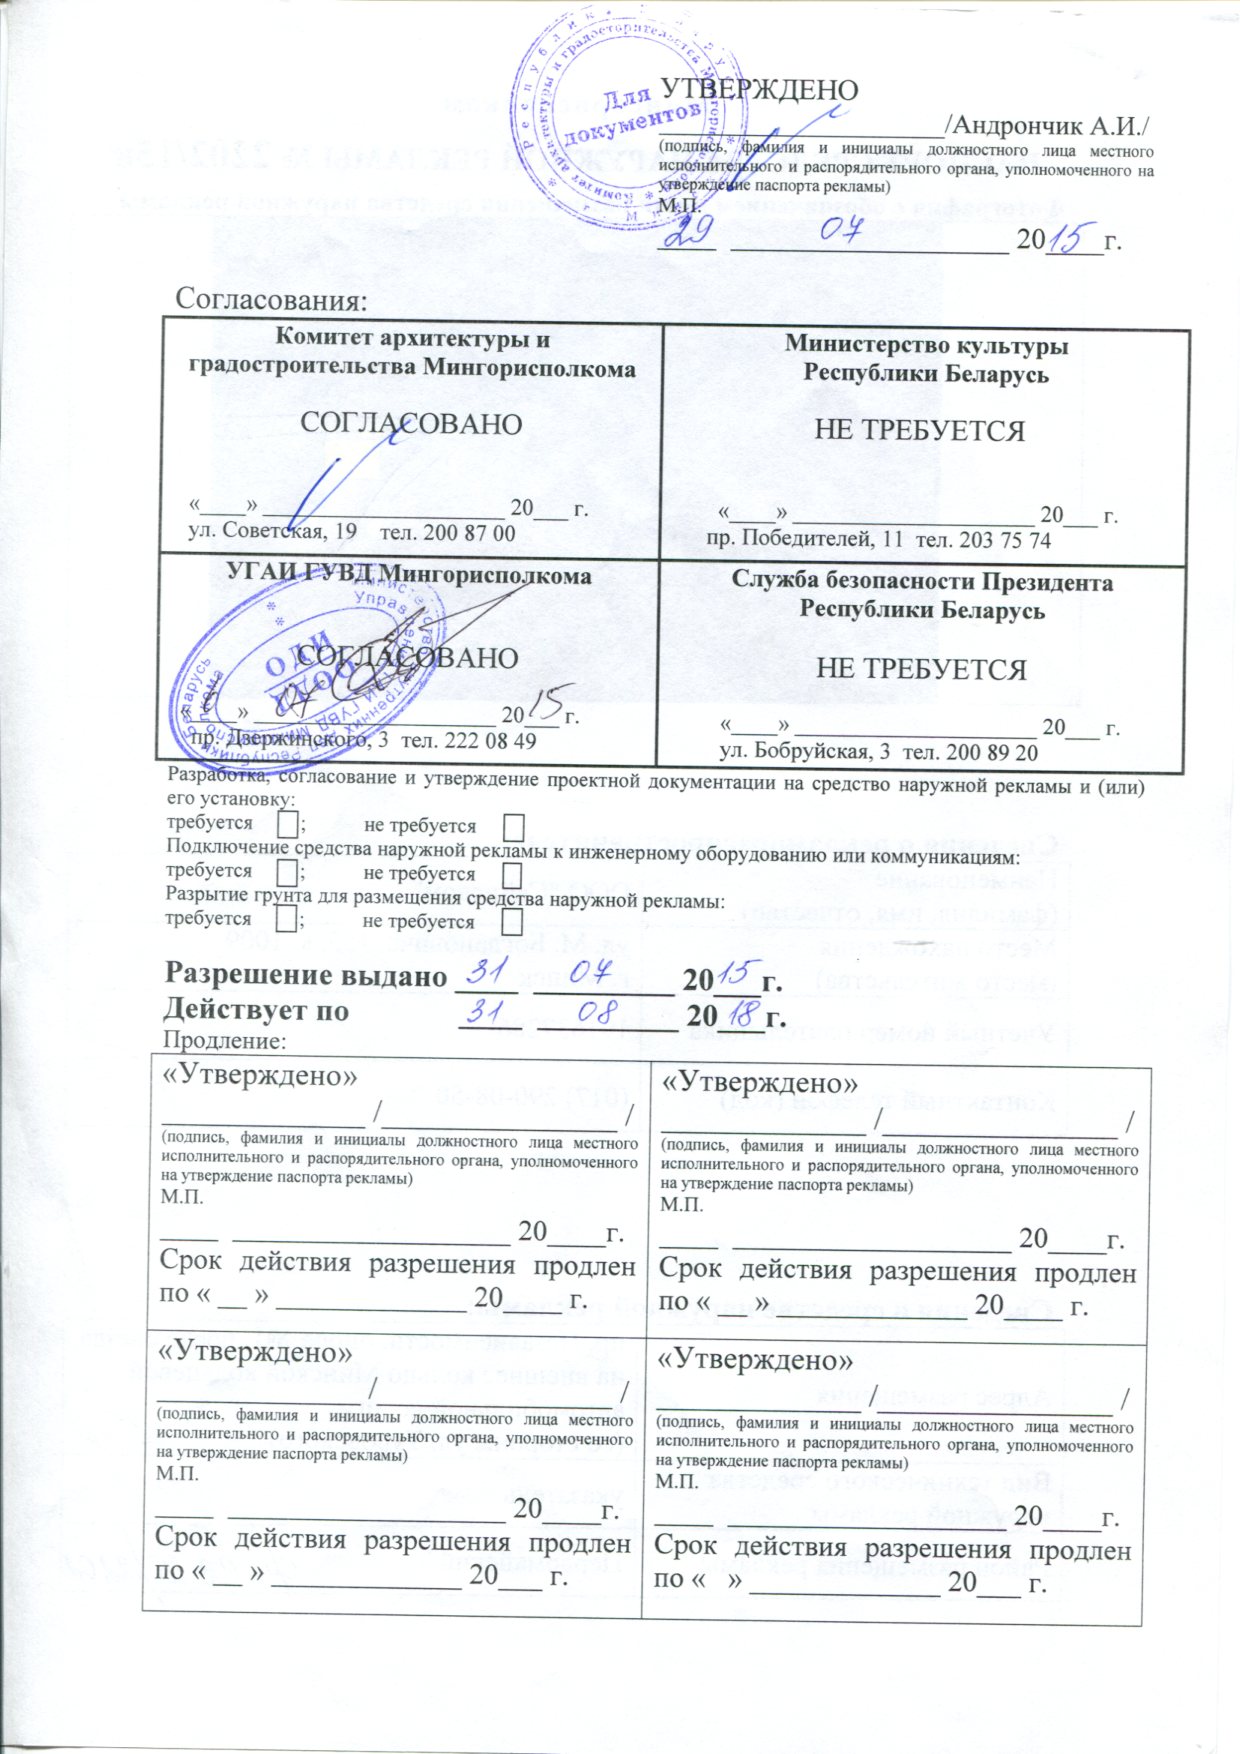 Для
документов
УТВЕРЖДЕНО
____________________/Андрончик А.И./
(подпись, фамилия и инициалы должностного лица местного
исполнительного и распорядительного органа, уполномоченного на
утверждение паспорта рекламы)
М.П.
29 07 2015г.
Согласования:
Комитет архитектуры и
градостроительства Мингорисполкома
СОГЛАСОВАНО
«____» ____________________ 20___ г.
ул. Советская, 19 тел. 200 87 00
Министерство культуры
Республики Беларусь
НЕ ТРЕБУЕТСЯ
«____» ____________________ 20___ г.
пр. Победителей, 11 тел. 203 75 74
УГАИ ГУВД Мингорисполкома
СОГЛАСОВАНО
«____» 07 2015 г.
пр. Дзержинского, 3 тел. 222 08 49
Служба безопасности Президента
Республики Беларусь
НЕ ТРЕБУЕТСЯ
«____» ____________________ 20___ г.
ул. Бобруйская, 3 тел. 200 89 20
Разработка, согласование и утверждение проектной документации на средство наружной рекламы и (или)
его установку:
требуется ; не требуется
Подключение средства наружной рекламы к инженерному оборудованию или коммуникациям:
требуется ; не требуется
Разрытие грунта для размещения средства наружной рекламы:
требуется ; не требуется
Разрешение выдано 31 07 2015г.
Действует по 31 08 2018г.
Продление:
«Утверждено»
______________ /________________ /
(подпись, фамилия и инициалы должностного лица местного
исполнительного и распорядительного органа, уполномоченного
на утверждение паспорта рекламы)
М.П.
____ ___________________ 20____г.
Срок действия разрешения продлен
по « __ » _____________ 20____ г.
«Утверждено»
______________ /________________ /
(подпись, фамилия и инициалы должностного лица местного
исполнительного и распорядительного органа, уполномоченного
на утверждение паспорта рекламы)
М.П.
____ ___________________ 20____г.
Срок действия разрешения продлен
по « __ » _____________ 20____ г.
«Утверждено»
______________ /________________ /
(подпись, фамилия и инициалы должностного лица местного
исполнительного и распорядительного органа, уполномоченного
на утверждение паспорта рекламы)
М.П.
____ ___________________ 20____г.
Срок действия разрешения продлен
по « __ » _____________ 20___ г.
«Утверждено»
______________ /________________ /
(подпись, фамилия и инициалы должностного лица местного
исполнительного и распорядительного органа, уполномоченного
на утверждение паспорта рекламы)
М.П.
________________________ 20____г.
Срок действия разрешения продлен
по « » _____________ 20___ г.